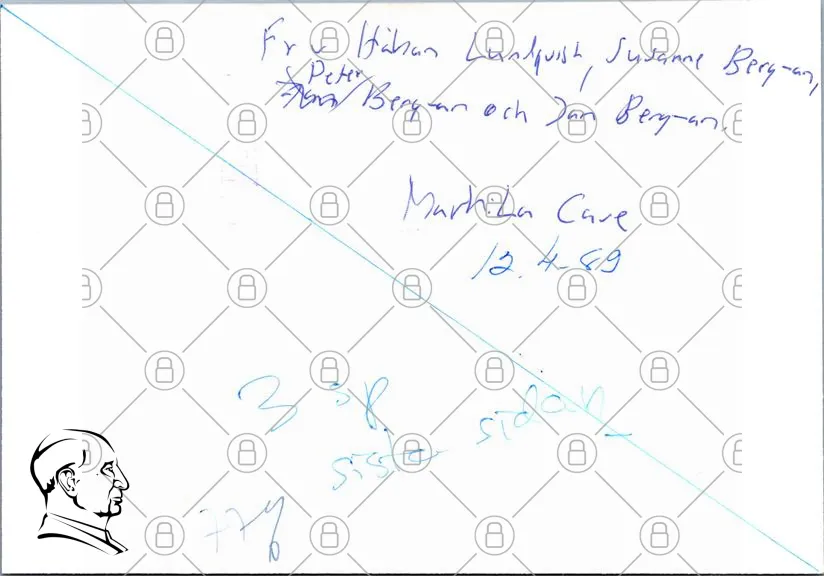 Fr v Håkan Lundquist, Susanne Bergman,
Peter
Bergman och Jan Bergman.
Cave
12.4-89
3 sp
sista sidan
77%